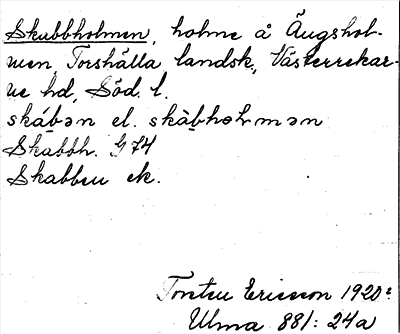 Skabbholmen, holme å Äugshol-
men, Torshälla landsk., Västerrekar-
ne hd, Söd. l.
skábən el. skàbhəlmən
Skabbh. G 74
Skabben ek.
Torsten Ericsson 1920:
Ulma 881: 24a